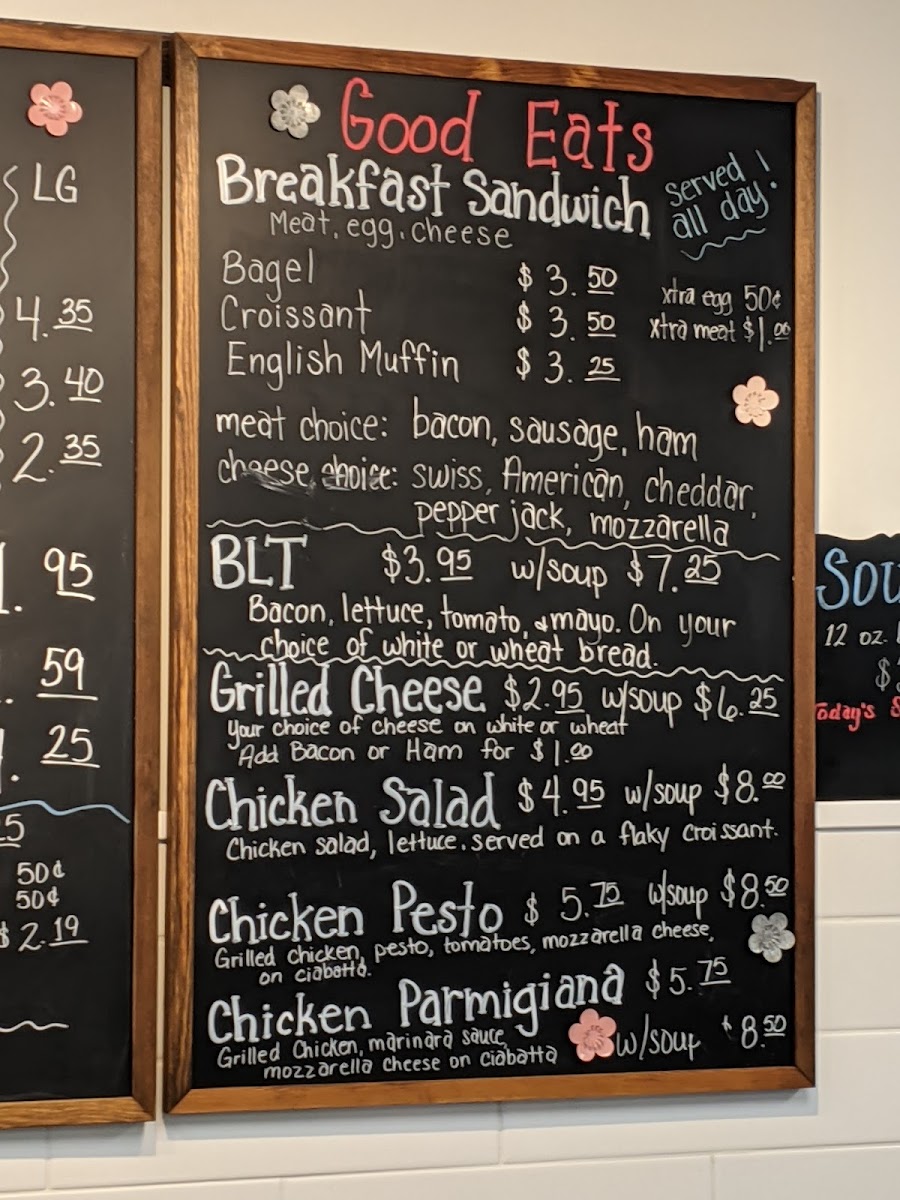 LG
4.35
3.40
2.35
95
59
25
50¢
50¢
$2.19
Good Eats
Breakfast Sandwich
served all day!
Meat, egg, cheese
Bagel $3.50
Croissant $3.50
English Muffin $3.25
xtra egg 50¢
xtra meat $1.00
meat choice: bacon, sausage, ham
cheese choice: swiss, American, cheddar,
pepper jack, mozzarella
BLT $3.95 w/soup $7.25
Bacon, lettuce, tomato, & mayo. On your
choice of white or wheat bread.
Grilled Cheese $2.95 w/soup $6.25
Your choice of cheese on white or wheat
Add Bacon or Ham for $1.00
Chicken Salad $4.95 w/soup $8.00
Chicken salad, lettuce, served on a flaky croissant.
Chicken Pesto $5.75 w/soup $8.50
Grilled chicken, pesto, tomatoes, mozzarella cheese,
on ciabatta.
Chicken Parmigiana $5.75
Grilled Chicken, marinara sauce, w/soup $8.50
mozzarella cheese on ciabatta
12 oz.
$
Today's